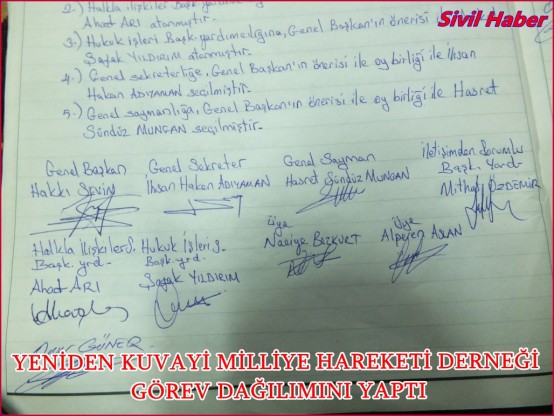 Sivil Haber
2-) Halkla ilişkiler Başk. yardımcılığına
Ahad ARI atanmıştır.
3-) Hukuk işleri Başk. yardımcılığına, Genel Başkan'ın önerisi
Şafak YILDIRIM atanmıştır.
4-) Genel sekreterliğe, Genel Başkan'ın önerisi ile oy birliği ile İhsan
Hakan ADIYAMAN seçilmiştir.
5-) Genel saymanlığa, Genel Başkan'ın önerisi ile oy birliği ile Hasret
Sündüz MUNGAN seçilmiştir.
Genel Başkan Genel Sekreter Genel Sayman İletişimden Sorumlu
Başk. Yard.
Hakkı SEVİN İhsan Hakan ADIYAMAN Hasret Sündüz MUNGAN Mithat ÖZDEMİR
Halkla İlişkilerS. Hukuk İşleri S. Üye Üye
Başk. yrd. Başk. yrd. Naciye BEZKURT Alperen ASLAN
Ahad ARI Şafak YILDIRIM
GÜNER
YENİDEN KUVAYİ MİLLİYE HAREKETİ DERNEĞİ
GÖREV DAĞILIMINI YAPTI